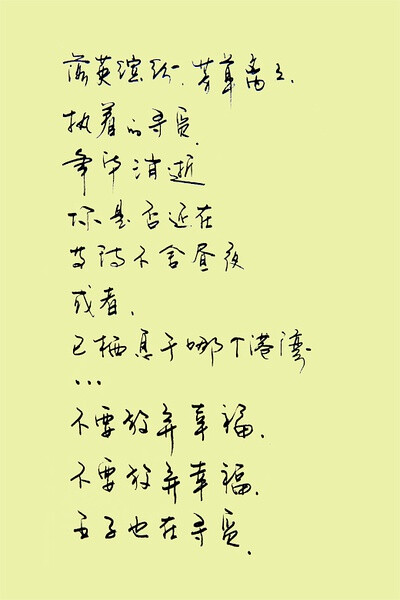 落英缤纷.芳草离々.
执着的寻觅.
年华消逝
你是否还在
等待不舍昼夜
或者,
已栖息于哪个港湾
...
不要放弃幸福.
不要放弃幸福.
王子也在寻觅.